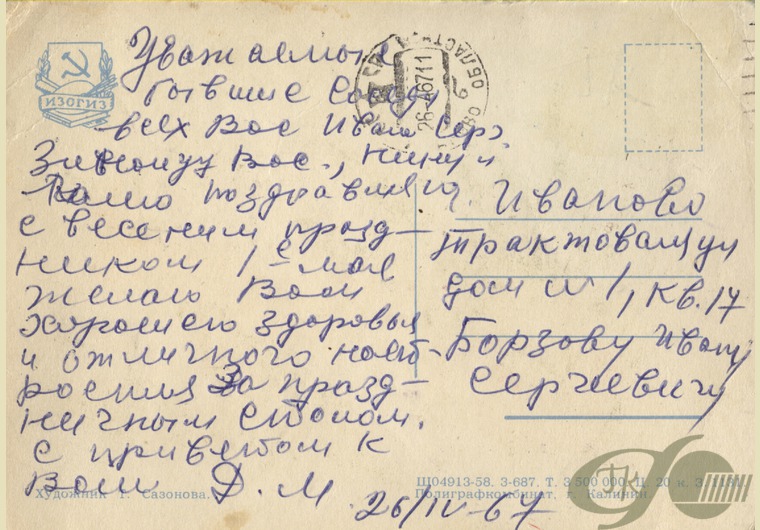 Уважаемые
бывшие соседи
всех Вас Иван Серг.
Зинаиду Вас., Нину и
поздравляю
с весенним празд-
ником 1ᵉ мая
желаю Вам
хорошего здоровья
и отличного наст-
роения за празд-
ничным столом.
с приветом к
Вам Д. М.
26/IV-67
г. Иваново
Трактовая ул
дом № 1, кв. 17
Борзову Ивану
Сергиевичу
ИЗОГИЗ
26-4-6711
ОБЛАСТН
Художник Г. Сазонова.
Щ04913-58. З-687. Т. 3 500 000. Ц. 20 к. З. 1181
Полиграфкомбинат, г. Калинин.